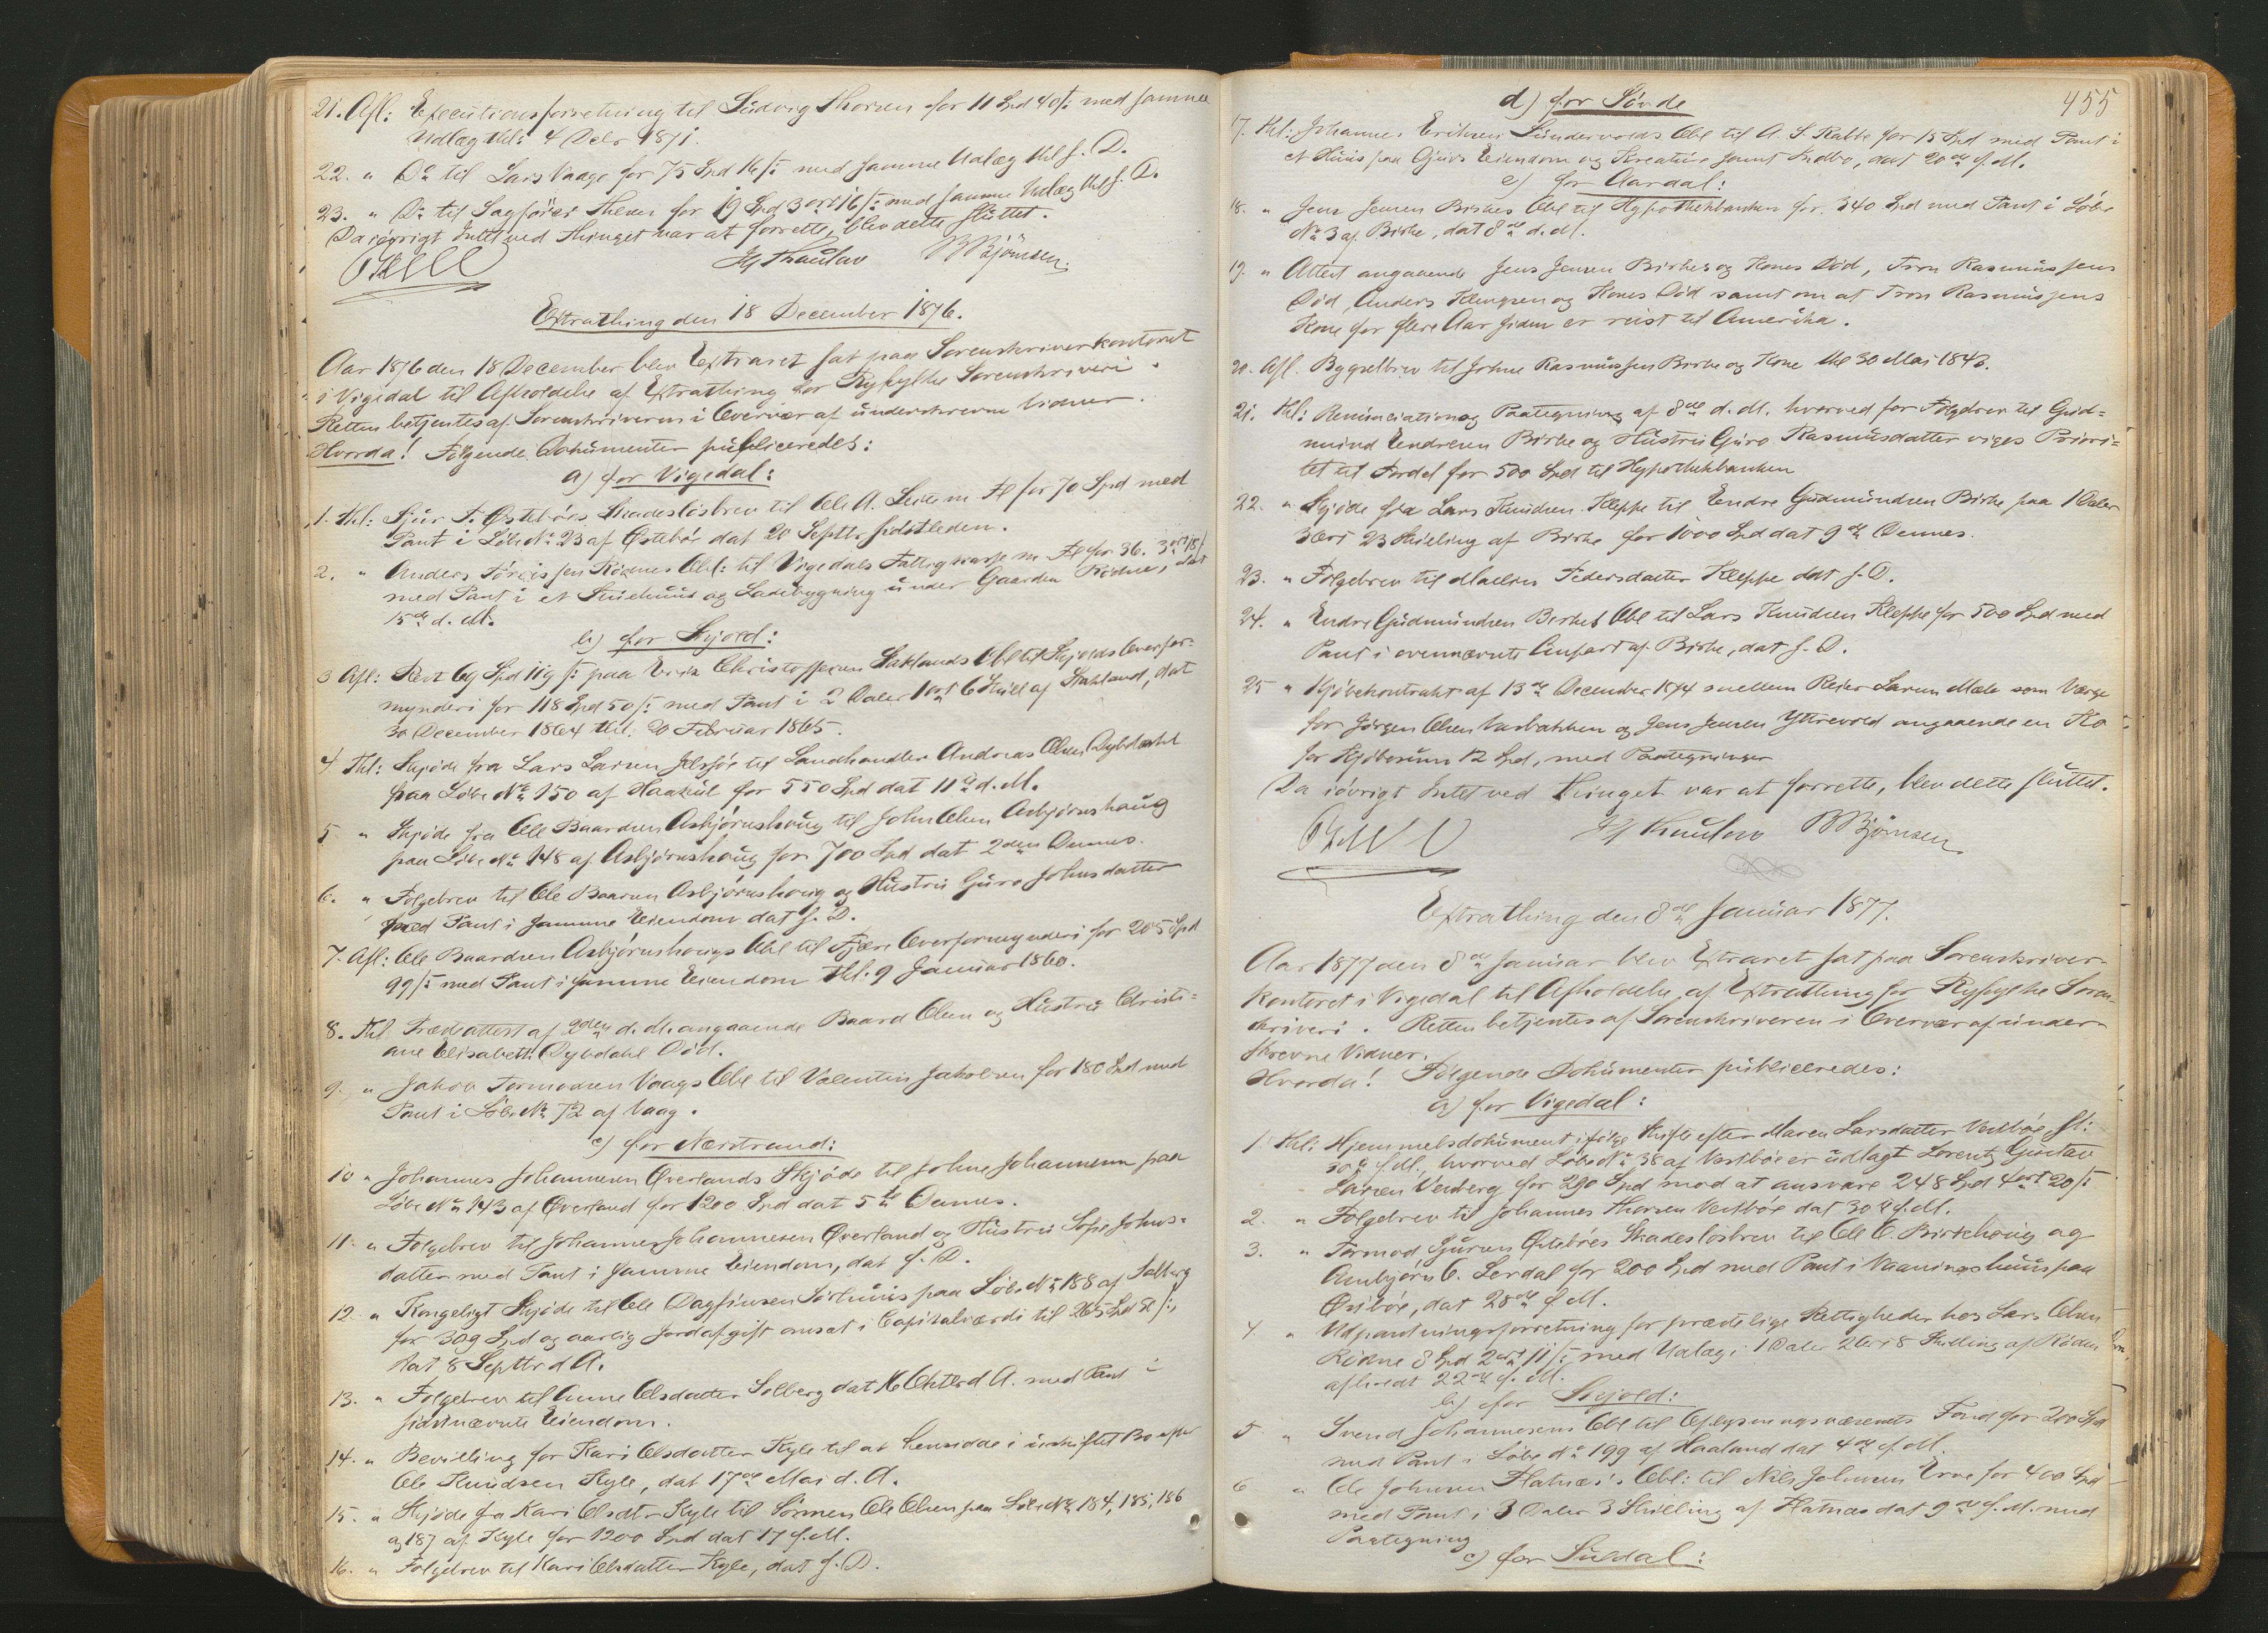 21. Afl: Executionsforretning til Ludvig Thorsen for 11 Spd 40 ſ: med samme
Udlæg thl: 4 Decbr 1871.
22. " Do til Lars Vaage for 75 Spd 16 ſ: med samme Udlæg thl s. D.
23. " Do til Sagfører for 19 Spd 3 ort 16 ſ: med samme Udlæg thl s. D.
Da iøvrigt Intet ved Thinget var at forrette, blev dette sluttet.
BBjörnsen.
Extrathing den 18 December 1876.
Aar 1876 den 18 December blev Extraret sat paa Sorenskriverkontoret
i Vigedal til Afholdelse af Extrathing for Ryfylke Sorenskriveri.
Retten betjentes af Sorenskriveren i Overvær af underskrevne Vidner.
Hvorda! Følgende Dokumenter publiceredes:
a) for Vigedal:
1. Thl: Sjur T. Østebøes Skadesløsbrev til Ole A. m Fl for 70 Spd med
Pant i Løbe No 23 af Østebø dat 20 Septbr sidstleden.
2. " Anders Rødnes Obl: til Vigedals Fattigkasse m Fl for 36. 3 ort 18 ſ
med Pant i et Stuehuus og Ladebygning under Gaarden Rødne, dat
15de d. M.
b) for Skjold:
3 Afl: Rest 69 Spd 119 ſ: paa Erik Christoffersen Staklands Obl til Skjolds Overfor-
mynderi for 118 Spd 50 ſ: med Pant i 2 Daler 1 ort 6 Skill af Stakland, dat
30 December 1864 thl: 20 Februar 1865.
4 Thl: Skjøde fra Lars Larsen til Landhandler Andreas Olsen Dybdahl
paa Løbe No 150 af for 550 Spd dat 11te d. M.
5 " Skjøde fra Ole Baardsen Asbjørnshoug til John Olsen Asbjørnshaug
paa Løbe No 148 af Asbjørnshoug for 700 Spd dat 2den Dennes.
6. " Følgebrev til Ole Baarsen Asbjørnshoug og Hustru Guro Johnsdatter
med Pant i samme Eiendom dat s. D.
7. Afl: Ole Baardsen Asbjørnshougs Obl til Overformynderi for 205 Spd
99 ſ: med Pant i samme Eiendom thl. 9 Januar 1860.
8. Thl. af 2den d. M. angaaende Baard Olsen og Hustru Christi-
ane Elisabeth Dybdahl Død.
9. " Jakob Tormodsen Vaags Obl til Valentin Jakobsen for 180 Spd med
Pant i Løbe No 72 af Vaag.
c) for Nærstrand:
10 " Johannes Johannesen Øverlands Skjøde til Johne Johannesen paa
Løbe No 143 af Øverland for 1200 Spd dat 5te Dennes.
11. " Følgebrev til Johannes Johannesen Øverland og Hustru Johns-
datter med Pant i samme Eiendom, dat s. D.
12. " Kongeligt Skjøde til Ole Dagfinsen Sørhuus paa Løbe No 188 af Solberg
for 309 Spd og aarlig Jordafgift ansat i Capitalværdi til 265 Spd
dat 8 Septbr d A.
13. " Følgebrev til Anne Olsdatter Solberg dat 16 Oktbr d A. med Pant i
sidstnævnte Eiendom.
14. " Bevilling for Kari Olsdatter Kyle til at hensidde i uskiftet Bo efter
Ole Knudsen Kyle, dat 17de Mai d. A.
15. " Skjøde fra Kari Olsdtr Kyle til Sønnen Ole Olsen paa Løbe No 184, 185, 186
og 187 af Kyle for 1200 Spd dat 17 f. M.
16. " Følgebrev til Kari Olsdatter Kyle, dat s. D.
455
d) for Søvde
17. Thl: Johannes Eriksen Obl til A. S. for 15 Spd med Pant i
et Huus paa Eiendom og Kreature samt Indbo, dat 20de f. M.
e) for Aardal:
18. " Jens Jensen Birkes Obl til Hypothekbanken for 340 Spd med Pant i Løbe
No 3 af Birke, dat 8de d. M.
19. " Attest angaaende Jens Jensen Birkes og Kones Død, Tron Rasmussens
Død, Anders og Kones Død samt om at Tron Rasmussens
Kone for flere Aar siden er reist til Amerika.
20. Afl. Bygselbrev til Johne Rasmussen Birke og Kone thl 30 Mai 1843.
21. Thl: Renunciation og Paategning af 8de d. M. hvorved for Følgebrev til Gud-
mund Endresen Birke og Hustru Guro Rasmusdatter viges Priori-
tet til Fordel for 500 Spd til Hypothekbanken
22. " Skjøde fra Lars Knudsen Kleppe til Endre Gudmundsen Birke paa 1 Daler
3 ort 23 Skilling af Birke for 1000 Spd dat 9de Dennes.
23. " Følgebrev til Pedersdatter Kleppe dat s. D.
24. " Endre Gudmundsen Birkes Obl til Lars Knudsen Kleppe for 500 Spd med
Pant i ovennævnte af Birke, dat s. D.
25 " Kjøbekontrakt af 13de December 1874 mellem Larsen Mæle som Værge
for Jørgen Olsen og Jens Jensen Yttrevold angaaende en Ko
for Kjøbesum 12 Spd, med Paategninger
Da iøvrigt Intet ved Thinget var at forrette, blev dette sluttet.
BBjörnsen
Extrathing den 8de Januar 1877.
Aar 1877 den 8de Januar blev Extraret sat paa Sorenskriver-
kontoret i Vigedal til Afholdelse af Extrathing for Ryfylke Soren-
skriveri. Retten betjentes af Sorenskriveren i Overvær af under-
skrevne Vidner.
Hvorda! Følgende Dokumenter publiceredes:
a) for Vigedal:
1. Thl: Hjemmelsdokument ifølge Skifte efter Maren Larsdatter Vestbøe
30te f. M., hvorved Løbe No 38 af Vestbøe er udlagt Lorentz Gustav
Larsen for 290 Spd mod at ansvare 248 Spd 4 ort 20 ſ:
2. " Følgebrev til Johannes Thorsen Vestbøe dat 30te f. M.
3. " Tormod Sjursen Østebøes Skadesløsbrev til Ole O. Birkhoug og
Ambjørn O. Lerdal for 200 Spd med Pant i Vaaningshuus paa
Østbøe, dat 28de f. M.
4. " Udpantningsforretning for præstelige Rettigheder hos Lars Olsen
Rødne 8 Spd 2 ort 11 ſ: med Udlæg i 1 Daler 2 Ort 8 Skilling af Rødne
afhredt 22de f. M.
b) for Skjold:
5 " Svend Johannesens Obl til Oplysningsvæsenets Fond for 200 Spd
med Pant i Løbe No 199 af Haaland dat 4de f. M.
6 " Ole Johnsen Obl: til Nils Johnsen for 400 Spd
med Pant i 3 Daler 3 Skilling af dat 9de f. M. med
Paategning
c) for Suldal: